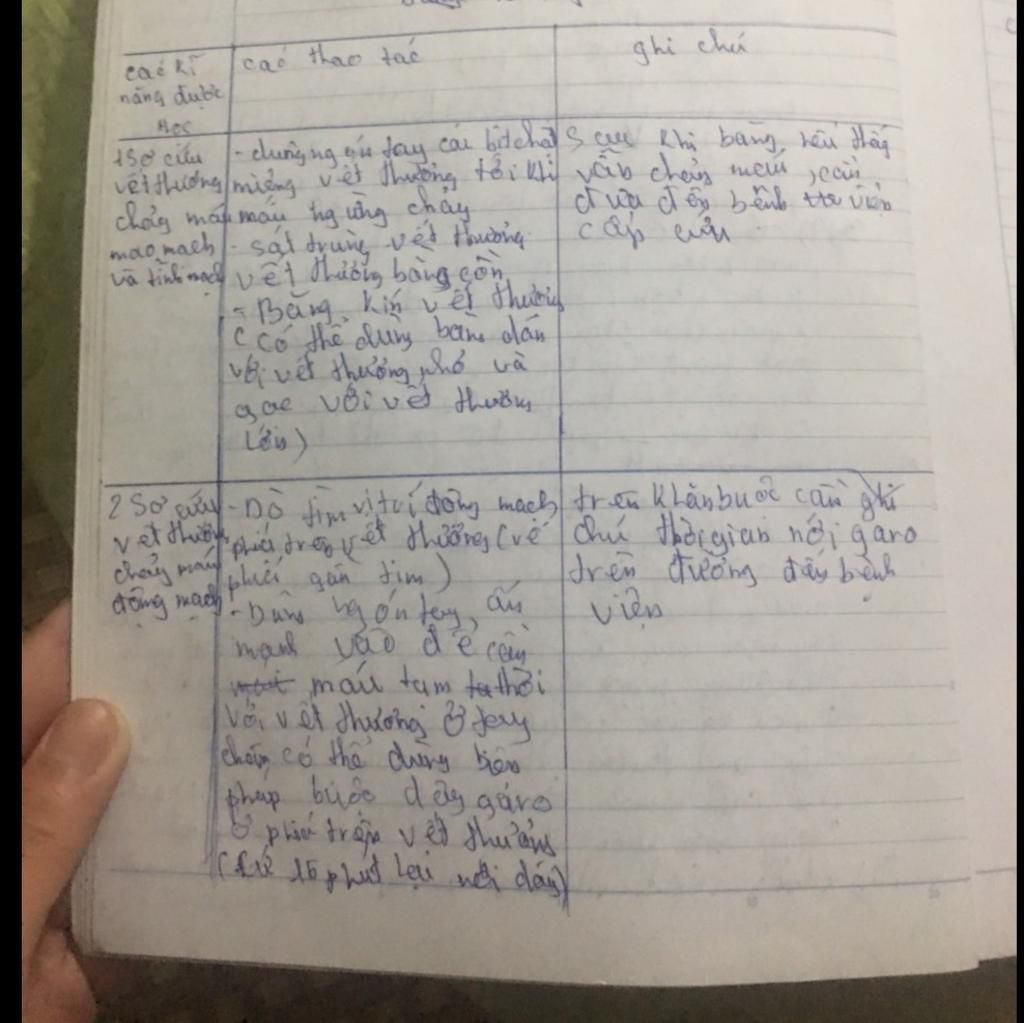 các kĩ
năng được
học
các thao tác
ghi chú
1 Sơ cứu
vết thương
chảy máu
mao mạch
và tĩnh mạch
- dùng ngón tay cái bịt chặt
miệng vết thương tới khi
máu ngừng chảy
- sát trùng vết thương
vết thương bằng cồn
- Băng kín vết thương
( có thể dùng băng dán
với vết thương nhỏ và
gạc với vết thương
lớn)
Sau khi băng, nếu thấy
vẫn chảy máu, cần
đưa đến bệnh viện
cấp cứu
2 Sơ cứu
vết thương
chảy máu
động mạch
- Dò tìm vị trí động mạch
phía trên vết thương (về
phía gần tim)
- Dùng ngón tay, ấn
mạnh vào để cầm
máu tạm thời
với vết thương ở tay
chân có thể dùng biện
pháp buộc dây garo
ở phía trên vết thương
(cứ 15 phút lại nới dây)
trên khăn buộc cần ghi
chú thời gian nới garo
trên đường đến bệnh
viện